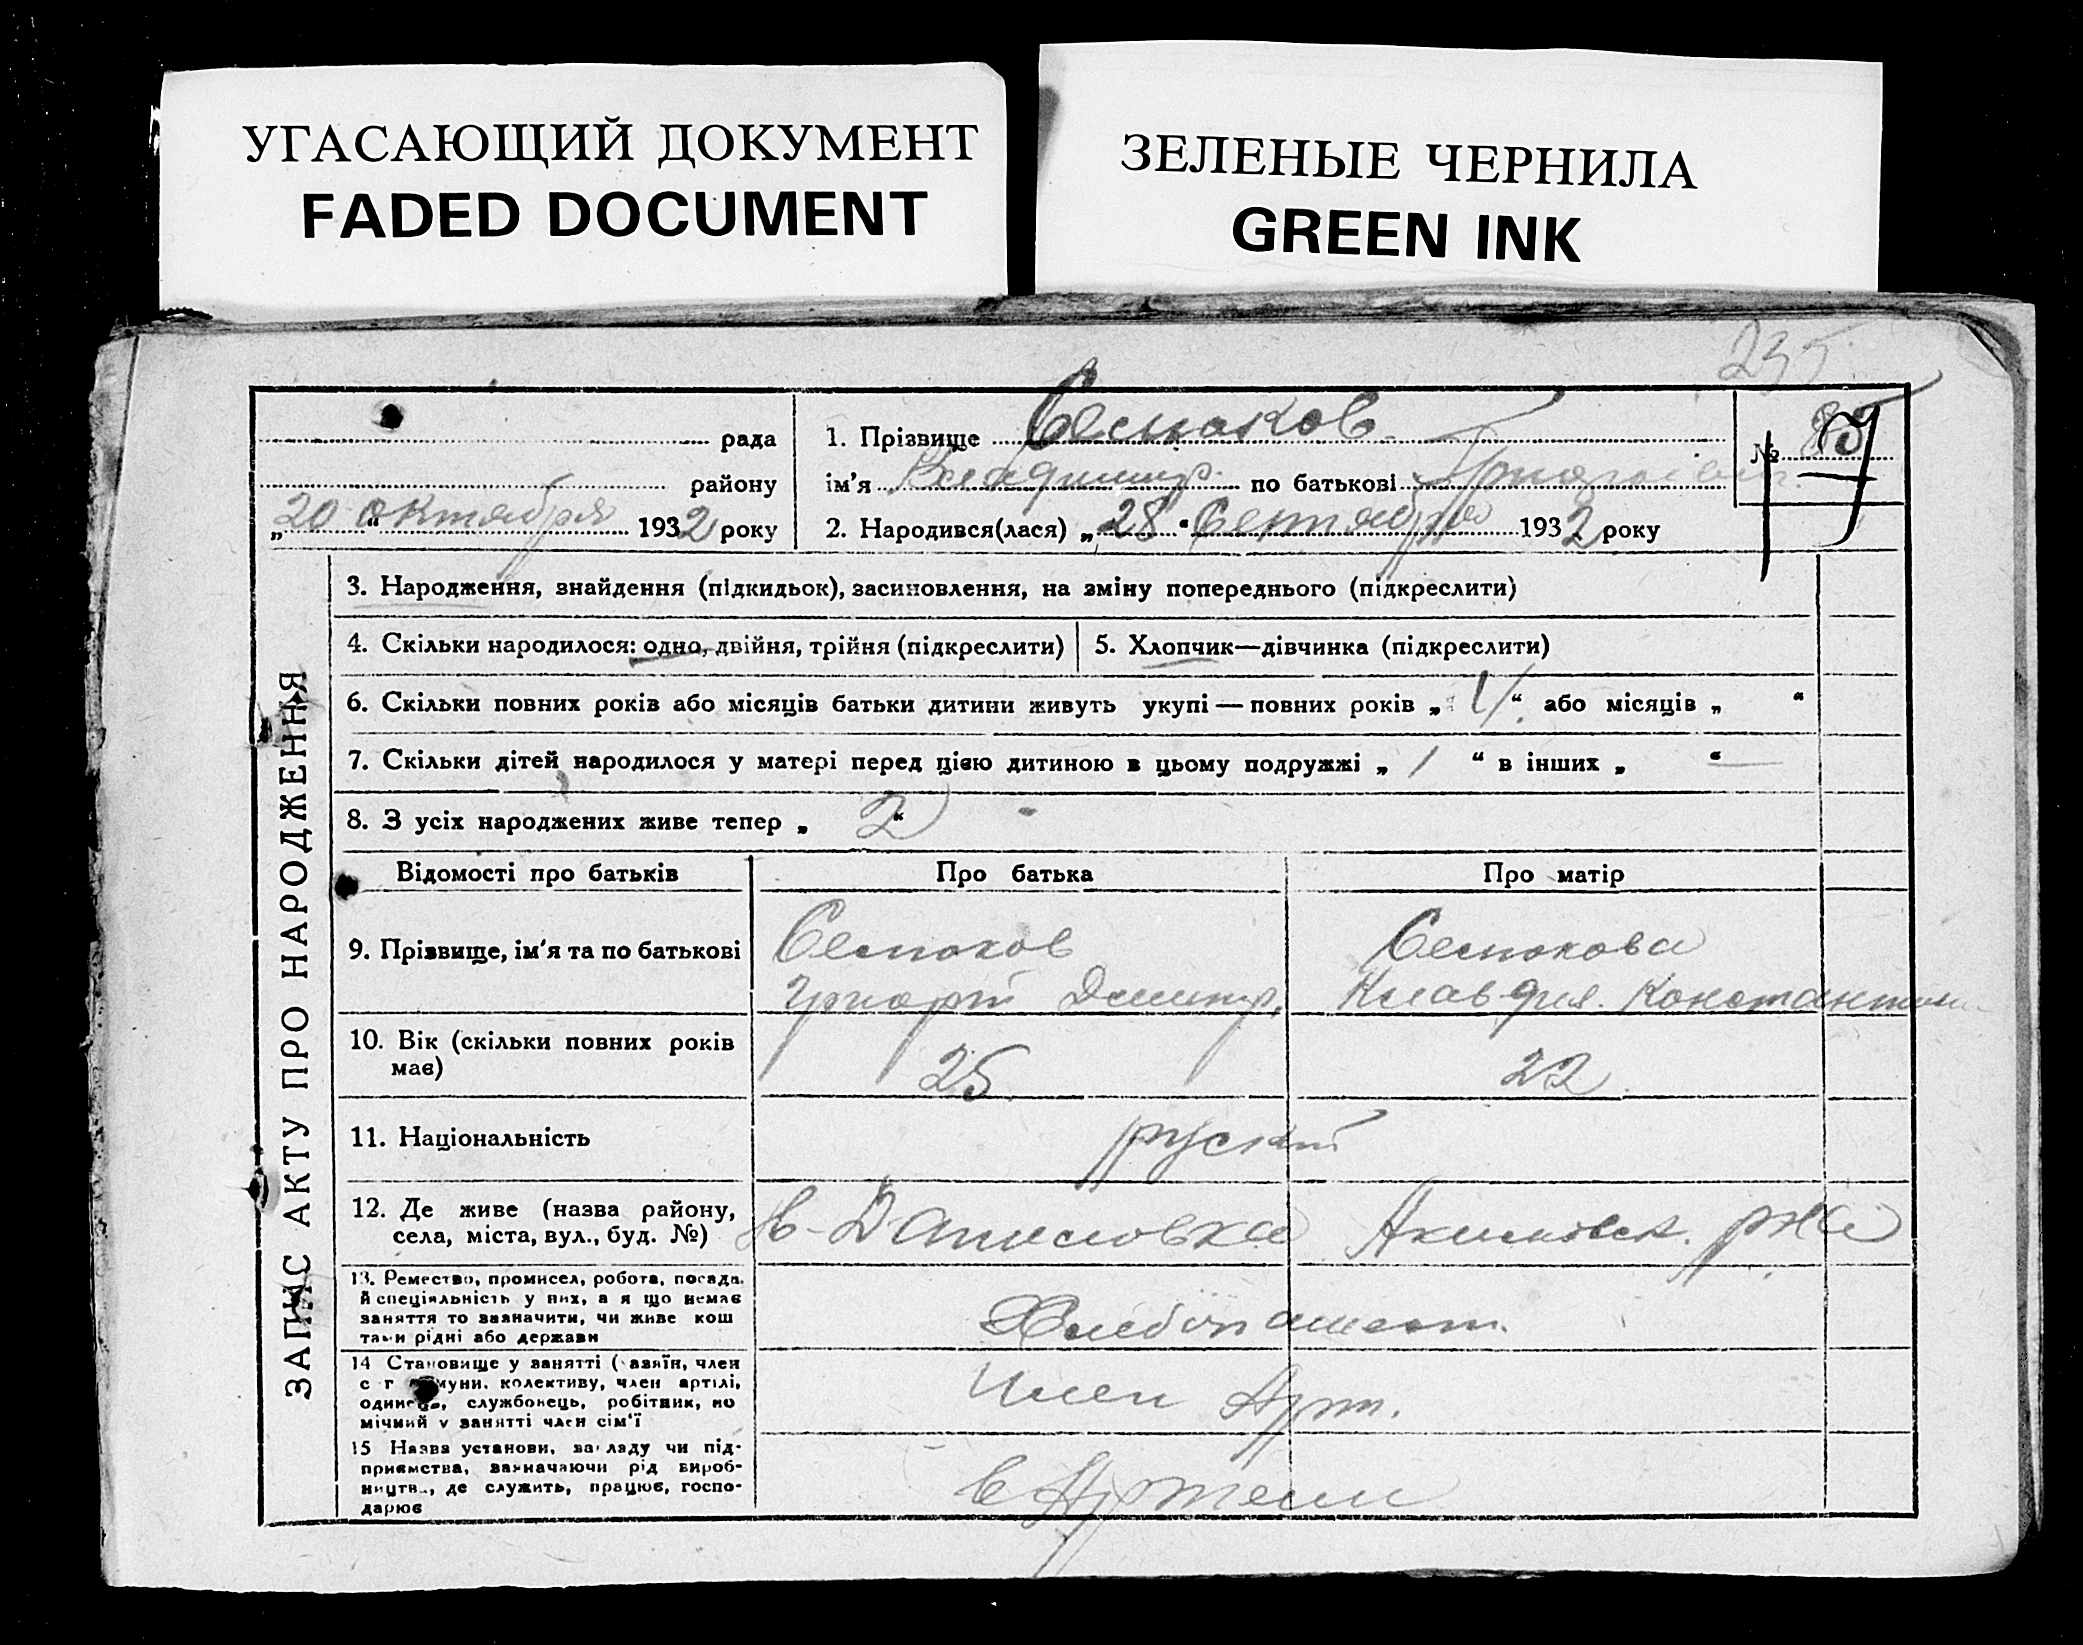 УГАСАЮЩИЙ ДОКУМЕНТ
FADED DOCUMENT
ЗЕЛЕНЫЕ ЧЕРНИЛА
GREEN INK
235
рада
району
„20“ октября 1932 року
1. Прізвище
ім'я Владимир по батькові
2. Народився(лася) „28“ Сентября 1932 року
№
ЗАПИС АКТУ ПРО НАРОДЖЕННЯ
3. Народження, знайдення (підкидьок), засиновлення, на зміну попереднього (підкреслити)
4. Скільки народилося: одно, двійня, трійня (підкреслити)
5. Хлопчик—дівчинка (підкреслити)
6. Скільки повних років або місяців батьки дитини живуть укупі — повних років „ “ або місяців „ “
7. Скільки дітей народилося у матері перед цією дитиною в цьому подружжі „ 1 “ в інших „ — “
8. З усіх народжених живе тепер „ 2 “
Відомості про батьків
Про батька
Про матір
9. Прізвище, ім'я та по батькові
Григорій Дмитр.
Клавдия Константин
10. Вік (скільки повних років
має)
25
22
11. Національність
руский
12. Де живе (назва району,
села, міста, вул., буд. №)
Н-Даниловка Акимовск. р-на
13. Ремество, промисел, робота, посада,
й спеціяльність у них, а я що немає
заняття то зазначити, чи живе кош
тами рідні або держави
Хлебопашест.
14 Становище у занятті (хазяїн, член
с г комуни, колективу, член артілі,
одинець, службонець, робітник, по
мічний у занятті член сім'ї
Член Арт.
15 Назва установи, закладу чи під-
приємства, зазначаючи рід вироб-
ництва, де служить, працює, госпо-
дарює
в Артели